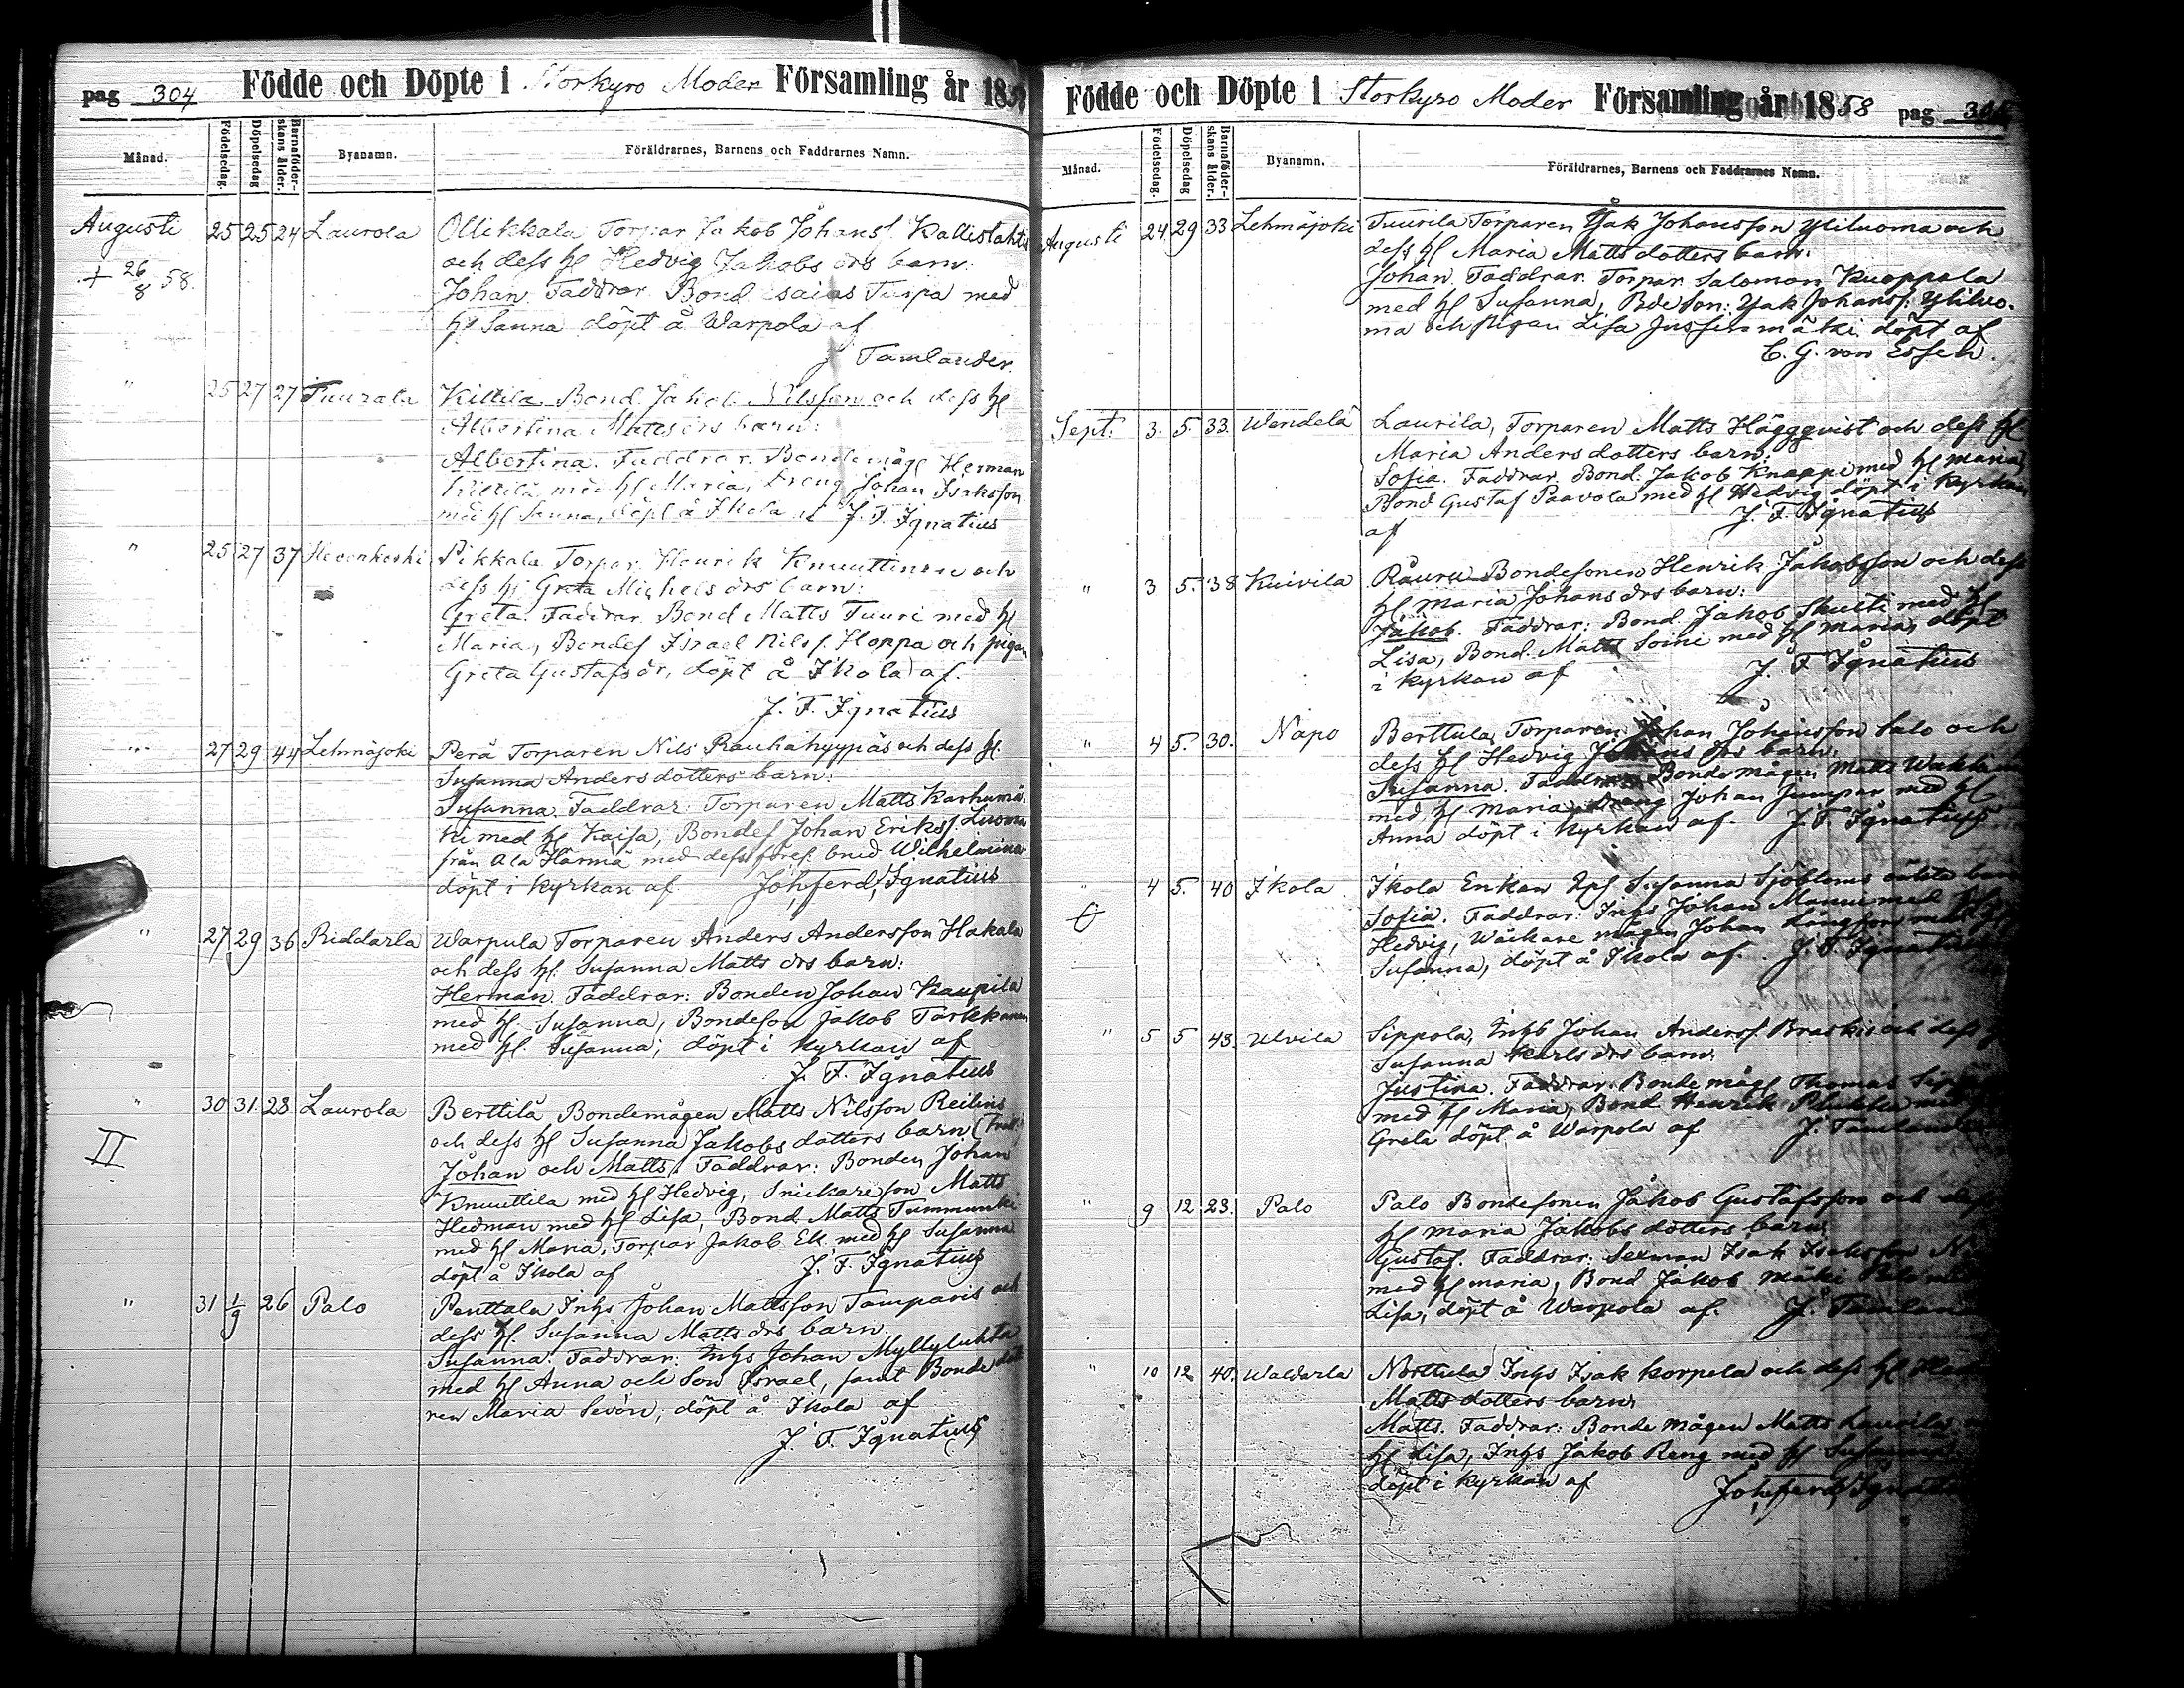 pag 304 Födde och Döpte i Storkyro Moder Församling år 1858
Månad. Födelsedag. Döpelsedag Barnaföder-skans ålder. Byanamn. Föräldrarnes, Barnens och Faddrarnes Namn.
Augusti 25 25 24 Laurola Ollikkala Torpar Jakob Johansf. Kallislahti
+ 26/8 58. och dess hf Hedvig Jakobs drs barn:
Johan. Faddrar Bond Esaias Turpa med
hf Sanna döpt å Warpola af
J Tamlander.
" 25 27 27 Tuurala Kittilä Bond. Jakob Nilsson och dess hf
Albertina Matts drs barn:
Albertina. Faddrar. Bondemåg Herman
Kittilä med hf Maria, Dreng Johan Isaksson
med hf Sanna, döpt å Ikola af J. F. Ignatius
" 25 27 37 Hevonkoski Pikkala Torpar. Henrik Knuuttinen och
dess hf Greta Michels drs barn:
Greta. Faddrar. Bond Matts Tuuri med hf
Maria, Bondes Israel Nilss. Hoppa och pigan
Greta Gustafs dr, döpt å Ikola af.
J. F. Ignatius
" 27 29 44 Lehmäjoki Perä Torparen Nils Rauhahyypäs och dess hf.
Susanna Anders dotters barn:
Susanna. Faddrar: Torparen Matts Karhumä-
ki med hf Kaisa, Bondes Johan Eriksf. Luoma
från Ala Härmä med dess föres. brud Wilhelmina
döpt i Kyrkan af Joh. Ferd. Ignatius
" 27 29 36 Riddarla Warpula Torparen Anders Andersson Hakala
och dess hf. Susanna Matts drs barn:
Herman. Faddrar: Bonden Johan Kaupila
med hf. Susanna, Bondeson Jakob Tarkkanen
med hf. Susanna; döpt i Kyrkan af
J. F. Ignatius
" 30 31 28 Laurola Berttilä Bondemågen Matts Nilsson Reilins
II och dess hf Susanna Jakobs dotters barn (Tvill.)
Johan och Matts. Faddrar: Bonden Johan
Knuuttila med hf Hedvig, Snickareson Matts
Hedman med hf Lisa, Bond. Matts Tummunki
med hf Maria, Torpar Jakob Ek med hf Susanna
döpt å Ikola af J. F. Ignatius
" 31 1/9 26 Palo Penttala Inhs Johan Mattsson Tamparis och
dess hf. Susanna Matts drs barn.
Susanna. Faddrar: Inhs Johan Myllyluhta
med hf Anna och Son Israel, samt Bonde
ren Maria Sevön; döpt å Ikola af
J. F. Ignatius
Födde och Döpte i Storkyro Moder Församling år 1858 pag 305
Månad. Födelsedag. Döpelsedag Barnaföder-skans ålder. Byanamn. Föräldrarnes, Barnens och Faddrarnes Namn.
Augusti 24 29 33 Lehmäjoki Tuurila Torparen Isak Johansson Yliluoma och
dess hf Maria Matts dotters barn:
Johan. Faddrar. Torpar Salomon Kuoppala
med hf Susanna, Bde Son: Isak Johansf: Yliluo-
ma och pigan Lisa Jussinmäki döpt af
C. G. von Essen.
Sept. 3. 5. 33. Wendelä Laurila, Torparen Matts Häggqvist och dess hf
Maria Anders dotters barn:
Sofia. Faddrar. Bond. Jakob Knappi med hf Maria,
Bond Gustaf Paavola med hf Hedvig döpt i Kyrkan
af J. F. Ignatius
" 3 5. 38 Kuivila Rauru Bondesonen Henrik Jakobsson och dess
hf Maria Johans drs barn:
Jakob. Faddrar: Bond. Jakob Skutti med hf
Lisa, Bond. Matts Soini med hf Maria, döpt
i kyrkan af J. F. Ignatius
" 4 5. 30. Napo Berttula, Torparen Johan Johansson Salo och
dess hf Hedvig Johans drs barn.
Susanna. Faddrar Bondemågen Matts
med hf Maria, Dreng Johan Jumpar med hf
Anna döpt i Kyrkan af. J. F. Ignatius
" 4 5. 40 Ikola Ikola Enkan Susanna Sjöbloms oäkta barn
Sofia. Faddrar: Inhs Johan Mannu med hf
Hedvig, Wäckare mågen Johan Långfors med hf
Susanna, döpt å Ikola af. J. F. Ignatius
" 5 5 43. Ulvila Sippola, Inhs Johan Andersf. Braskis och dess hf
Susanna Karls drs barn.
Justina. Faddrar: Bonde måg Thomas
med hf Maria, Bond Henrik med
Greta döpt å Warpola af J. Tamlander
" 9 12 23. Palo Palo Bondesonen Jakob Gustafsson och dess
hf Maria Jakobs dotters barn
Gustaf. Faddrar: Sexman Isak Isaksson
med hf Maria, Bond Jakob Mäki Palo med
Lisa, döpt å Warpola af. J. Tamlander
" 10 12 40. Waldarla Norttula Inhs Isak Korpela och dess hf
Matts dotters barn
Matts. Faddrar: Bonde mågen Matts Laurila
hf Lisa, Inhs Jakob Reng med hf Susanna
döpt i Kyrkan af Joh. Ferd. Ignatius